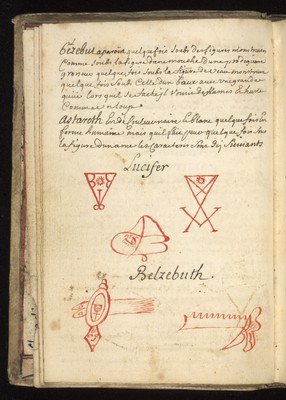 Bezebut apparoit quelque fois soubs des figures monstrueuses
comme soubs la figure d'une mouche d'une prodigieuse
grosseur quelque fois soubs la figure de veau monstrueux
quelque fois soubs celle d'un baux avec une grande
queue lors quil se fache il vomie de flames et hurle
comme un loup.
Astaroth noir blanc quelque fois en
forme humaine mais quelque fois sous
la figure d'un ane les caracteres sont suivants
Lucifer
Belzebuth.